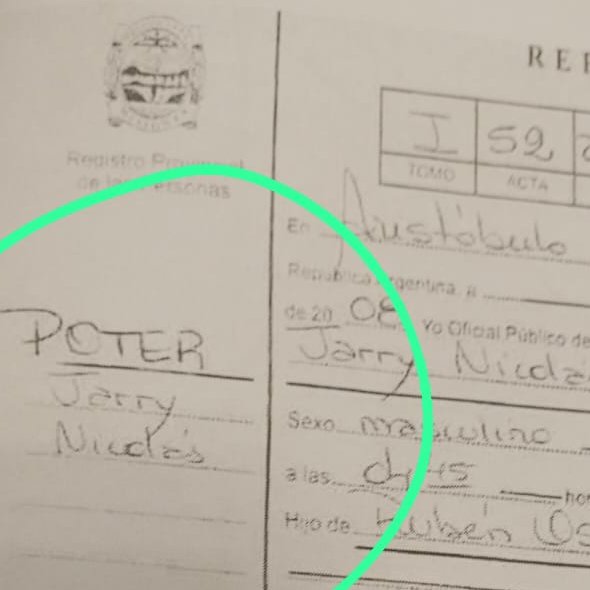 Registro Provincial
de las Personas
POTER
Jarry
Nicolás
I 52
TOMO ACTA
En Aristóbulo
República Argentina, a
de 20 08 Yo Oficial Público de
Jarry Nicolás
Sexo masculino
a las
Hijo de Rubén